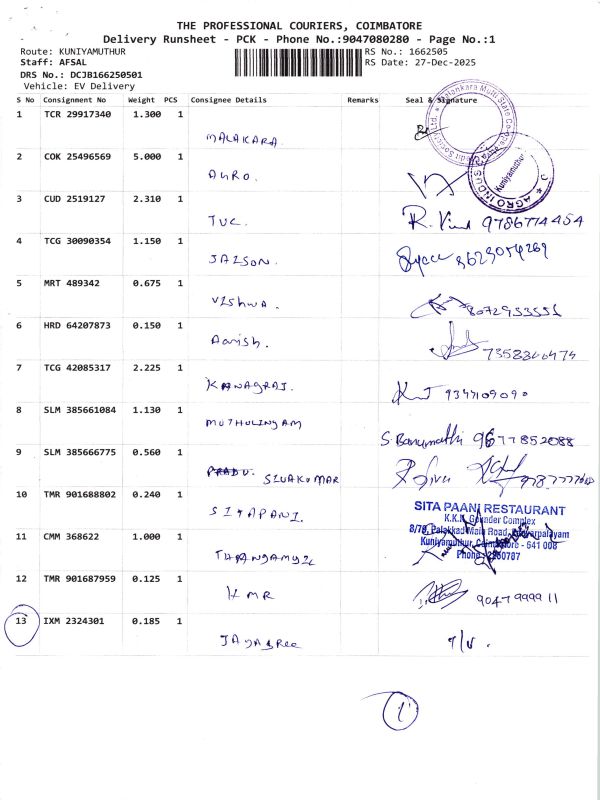 THE PROFESSIONAL COURIERS, COIMBATORE
Delivery Runsheet - PCK - Phone No.:9047080280 - Page No.:1
Route: KUNIYAMUTHUR RS No.: 1662505
Staff: AFSAL RS Date: 27-Dec-2025
DRS No.: DCJB166250501
Vehicle: EV Delivery
S No Consignment No Weight PCS Consignee Details Remarks Seal & Signature
1 TCR 29917340 1.300 1
MALAKARA.
2 COK 25496569 5.000 1
AGRO.
AGRO INDUS
Kuniyamuthur
3 CUD 2519127 2.310 1
TVC. 9786774454
4 TCG 30090354 1.150 1
JAISON.
5 MRT 489342 0.675 1
VISHWA.
6 HRD 64207873 0.150 1
7 TCG 42085317 2.225 1
KANAGRAJ.
8 SLM 385661084 1.130 1
MUTHULINGAM
S. Banumathi 9677852088
9 SLM 385666775 0.560 1
SIVAKUMAR
10 TMR 901688802 0.240 1
SITAPANI.
SITA PAANI RESTAURANT
K.K.K. Gounder Complex
8/79, Palakkad Main Road,
Kuniyamuthur, Coimbatore - 641 008
11 CMM 368622 1.000 1
12 TMR 901687959 0.125 1
HMR 9047999911
13 IXM 2324301 0.185 1
JAYASREE
1